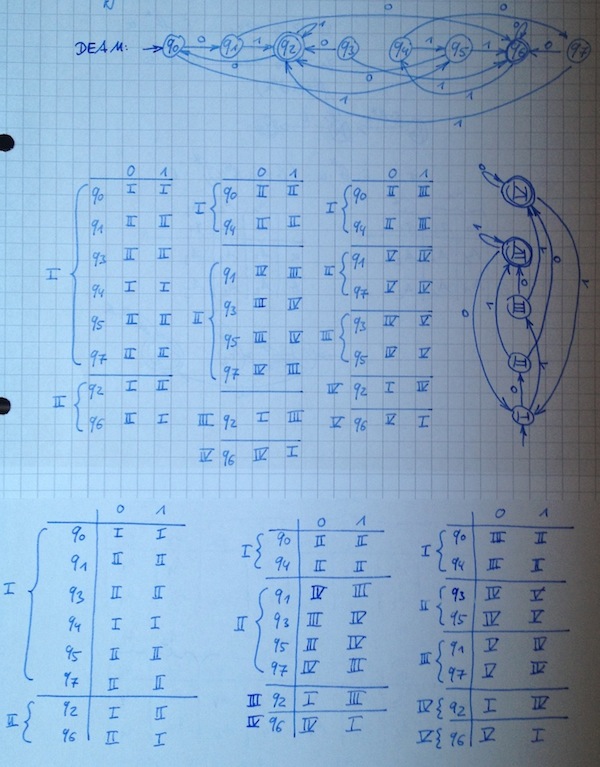 DEAM: q0 q1 q2 q3 q4 q5 q6 q7
0 1 0 1 1 0 0
0 0 1 0 1
0 0 1
1 1
0 1
I { q0 I I
q1 II II
q3 II II
q4 I I
q5 II II
q7 II II
II { q2 I II
q6 II I
0 1
I { q0 II II
q4 II II
II { q1 IV III
q3 III IV
q5 III IV
q7 IV III
III q2 I III
IV q6 IV I
0 1
I { q0 II III
q4 II III
II { q1 V IV
q7 V IV
III { q3 IV V
q5 IV V
IV q2 I IV
V q6 V I
0 V
1 IV
III
II
I
0 1
I { q0 I I
q1 II II
q3 II II
q4 I I
q5 II II
q7 II II
II { q2 I II
q6 II I
0 1
I { q0 II II
q4 II II
II { q1 IV III
q3 III IV
q5 III IV
q7 IV III
III q2 I III
IV q6 IV I
0 1
I { q0 III II
q4 III II
II { q3 IV V
q5 IV V
III { q1 V IV
q7 V IV
IV { q2 I IV
V { q6 V I